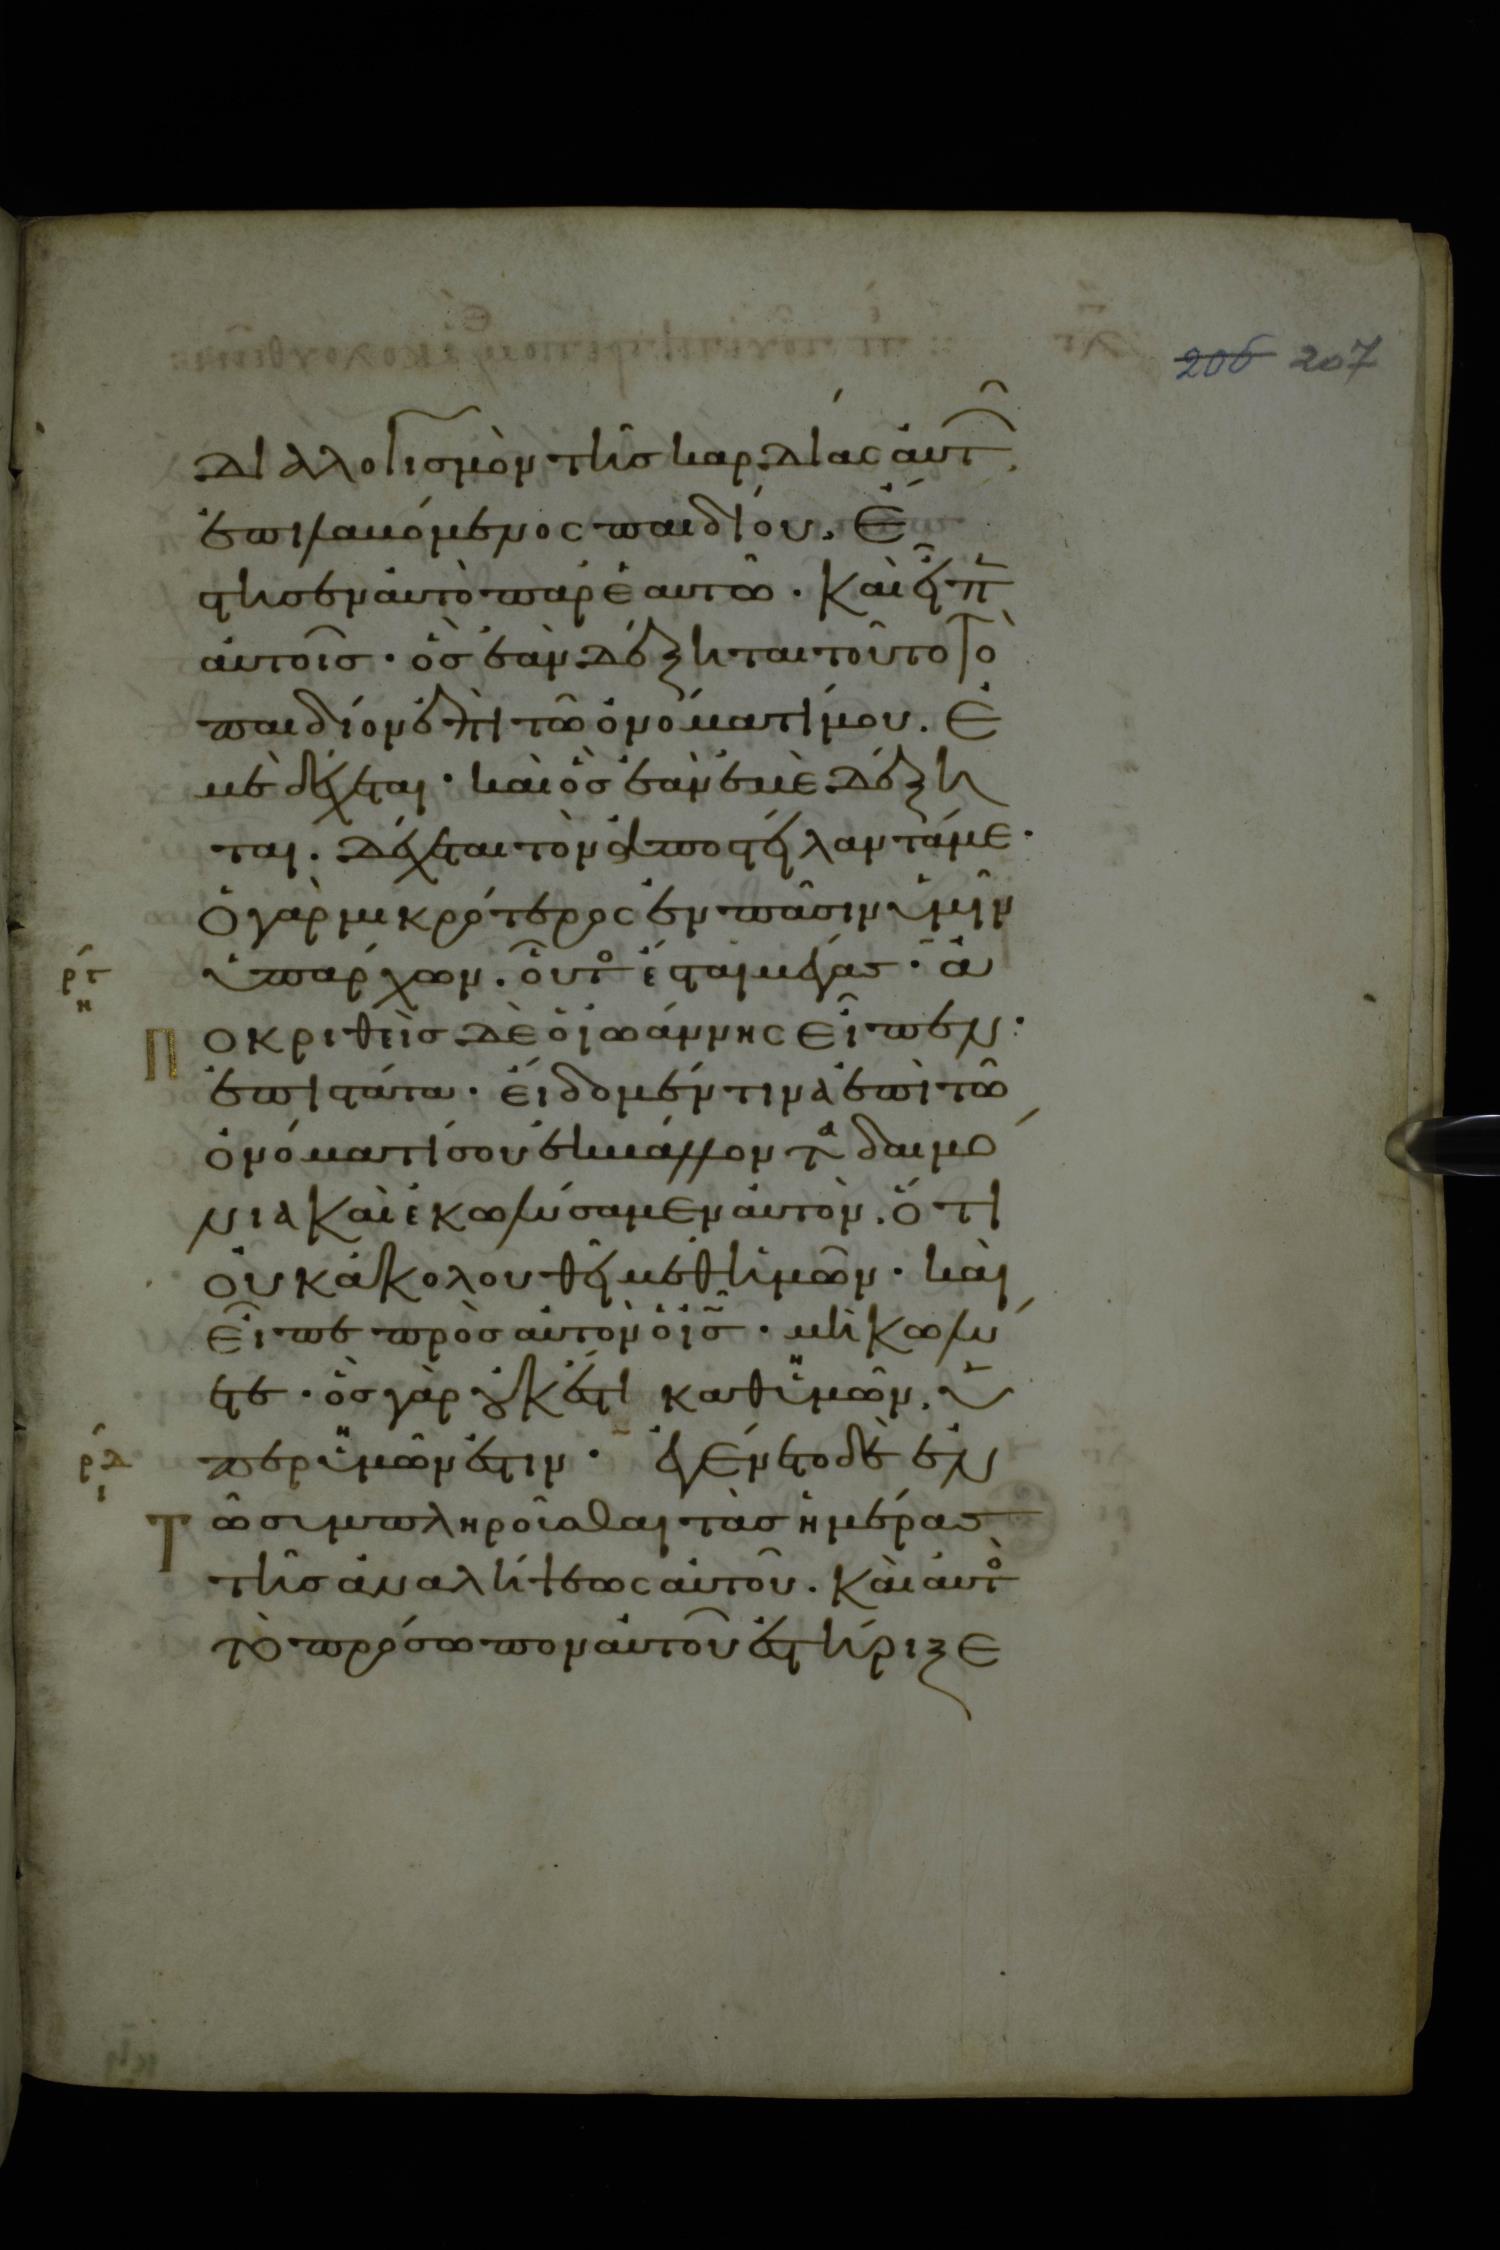 206 207
διαλογισμὸν τῆς καρδίας αὐτ῀
ἐπιλαβόμενος παιδίου. Ἔ
στησεν αὐτὸ παρ' ἑαυτῶ. Καὶ εἶπ
αὐτοῖς. ὃς ἐὰν δέξηται τοῦτο τὸ
παιδίον ἐπὶ τῶ ὀνόματί μου. Ἐ
μὲ δέχεται. καὶ ὃς ἐὰν ἐμὲ δέξη
ται. δέχεται τὸν ἀποστείλαντά με.
Ὁ γὰρ μικρότερος ἐν πᾶσιν ὑμῖν
ρ̅γ
η
ὑπάρχων. οὗτος ἔσται μέγας. ἀ
Π
οκριθεὶς δὲ ὁ ἰωάννης εἶπεν.
ἐπιστάτα. εἴδομέν τινα ἐπὶ τῶ
ὀνόματί σου ἐκβάλλον τὰ δαιμό
νια καὶ ἐκωλύσαμεν αὐτὸν. ὅτι
οὐκ ἀκολουθεῖ μεθ' ἡμῶν. καὶ
εἶπε πρὸς αὐτὸν ὁ ι̅ς̅. μὴ κωλύ
ετε. ὃς γὰρ οὐκ ἔστι καθ' ὑμῶν. ὑ
ρ̅δ
ι
πὲρ ὑμῶν ἐστιν. ἐγένετο δὲ ἐν
Τ
ῶ συμπληροῖσθαι τὰς ἡμέρας
τῆς ἀναλήψεως αὐτοῦ. Καὶ αὐτὸς
τὸ πρόσωπον αὐτοῦ ἐστήριξε